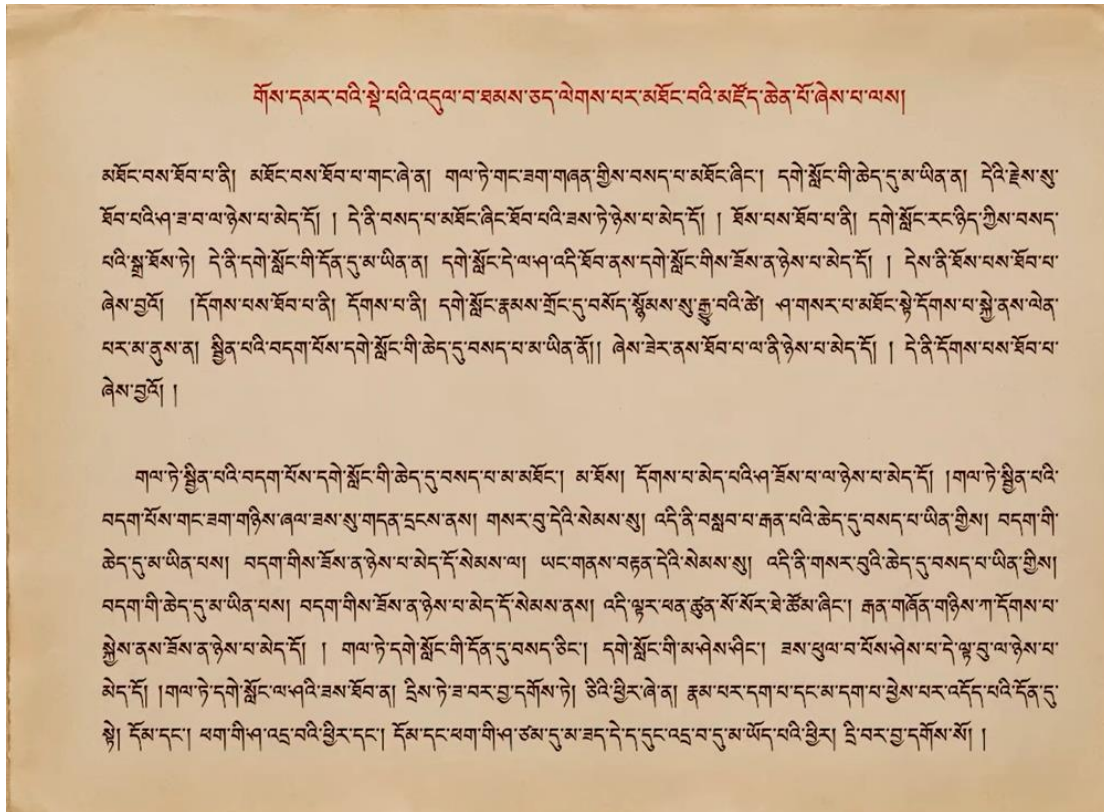 གོས་དམར་བའི་སྡེ་པའི་འདུལ་བ་ཐམས་ཅད་ལེགས་པར་མཐོང་བའི་མཛོད་ཆེན་པོ་ཞེས་པ་ལས།
མཐོང་བས་ཐོབ་པ་ནི། མཐོང་བས་ཐོབ་པ་གང་ཞེ་ན། གལ་ཏེ་གང་ཟག་གཞན་གྱིས་བསད་པ་མཐོང་ཞིང་། དགེ་སློང་གི་ཆེད་དུ་མ་ཡིན་ན། དེའི་རྗེས་སུ་
ཐོབ་པའི་ཤ་ཟ་བ་ལ་ཉེས་པ་མེད་དོ། ། དེ་ནི་བསད་པ་མཐོང་ཞིང་ཐོབ་པའི་ཟས་ཏེ་ཉེས་པ་མེད་དོ། ། ཐོས་པས་ཐོབ་པ་ནི། དགེ་སློང་རང་ཉིད་ཀྱིས་བསད་
པའི་སྒྲ་ཐོས་ཏེ། དེ་ནི་དགེ་སློང་གི་དོན་དུ་མ་ཡིན་ན། དགེ་སློང་དེ་ལ་ཤ་འདི་ཐོབ་ནས་དགེ་སློང་གིས་ཟོས་ན་ཉེས་པ་མེད་དོ། ། དེས་ནི་ཐོས་པས་ཐོབ་པ་
ཞེས་བྱའོ། །དོགས་པས་ཐོབ་པ་ནི། དོགས་པ་ནི། དགེ་སློང་རྣམས་གྲོང་དུ་བསོད་སྙོམས་སུ་རྒྱུ་བའི་ཚེ། ཤ་གསར་པ་མཐོང་སྟེ་དོགས་པ་སྐྱེ་ནས་ལེན་
པར་མ་ནུས་ན། སྦྱིན་པའི་བདག་པོས་དགེ་སློང་གི་ཆེད་དུ་བསད་པ་མ་ཡིན་ནོ།། ཞེས་ཟེར་ནས་ཐོབ་པ་ལ་ནི་ཉེས་པ་མེད་དོ། ། དེ་ནི་དོགས་པས་ཐོབ་པ་
ཞེས་བྱའོ། །
གལ་ཏེ་སྦྱིན་པའི་བདག་པོས་དགེ་སློང་གི་ཆེད་དུ་བསད་པ་མ་མཐོང་། མ་ཐོས། དོགས་པ་མེད་པའི་ཤ་ཟོས་པ་ལ་ཉེས་པ་མེད་དོ། །གལ་ཏེ་སྦྱིན་པའི་
བདག་པོས་གང་ཟག་གཉིས་ཞལ་ཟས་སུ་གདན་དྲངས་ནས། གསར་བུ་དེའི་སེམས་སུ། འདི་ནི་བསླབ་པ་རྒན་པའི་ཆེད་དུ་བསད་པ་ཡིན་གྱིས། བདག་གི་
ཆེད་དུ་མ་ཡིན་པས། བདག་གིས་ཟོས་ན་ཉེས་པ་མེད་དོ་སེམས་ལ། ཡང་གནས་བརྟན་དེའི་སེམས་སུ། འདི་ནི་གསར་བུའི་ཆེད་དུ་བསད་པ་ཡིན་གྱིས།
བདག་གི་ཆེད་དུ་མ་ཡིན་པས། བདག་གིས་ཟོས་ན་ཉེས་པ་མེད་དོ་སེམས་ནས། འདི་ལྟར་ཕན་ཚུན་སོ་སོར་ཐེ་ཚོམ་ཞིང་། རྒན་གཞོན་གཉིས་ཀ་དོགས་པ་
སྐྱེས་ནས་ཟོས་ན་ཉེས་པ་མེད་དོ། ། གལ་ཏེ་དགེ་སློང་གི་དོན་དུ་བསད་ཅིང་། དགེ་སློང་གི་མ་ཤེས་ཤིང་། ཟས་ཕུལ་བ་པོས་ཤེས་པ་དེ་ལྟ་བུ་ལ་ཉེས་པ་
མེད་དོ། །གལ་ཏེ་དགེ་སློང་ལ་ཤའི་ཟས་ཐོབ་ན། དྲིས་ཏེ་ཟ་བར་བྱ་དགོས་ཏེ། ཅིའི་ཕྱིར་ཞེ་ན། རྣམ་པར་དག་པ་དང་མ་དག་པ་ཕྱེས་པར་འདོད་པའི་དོན་དུ་
སྟེ། དོམ་དང་། ཕག་གི་ཤ་འདྲ་བའི་ཕྱིར་དང་། དོམ་དང་ཕག་གི་ཤ་ཙམ་དུ་མ་ཟད་དེ་ད་དུང་འདྲ་བ་དུ་མ་ཡོད་པའི་ཕྱིར། དྲི་བར་བྱ་དགོས་སོ། །